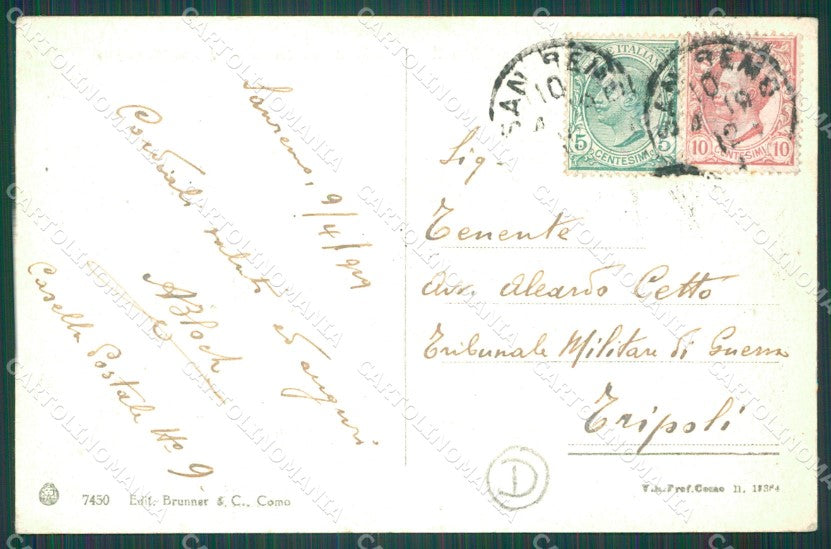 Sanremo, 9/4/919
Cordiali saluti ed auguri
ABloch
Casella Postale No 9
7450 Edit. Brunner & C., Como
SAN REMO
10
SAN REMO
10
12
POSTE ITALIANE
5 CENTESIMI 5
10 CENTESIMI 10
Sig.
Tenente
Avv. Aleardo Cetto
Tribunale Militare di Guerra
Tripoli
D
CARTOLINOMANIA